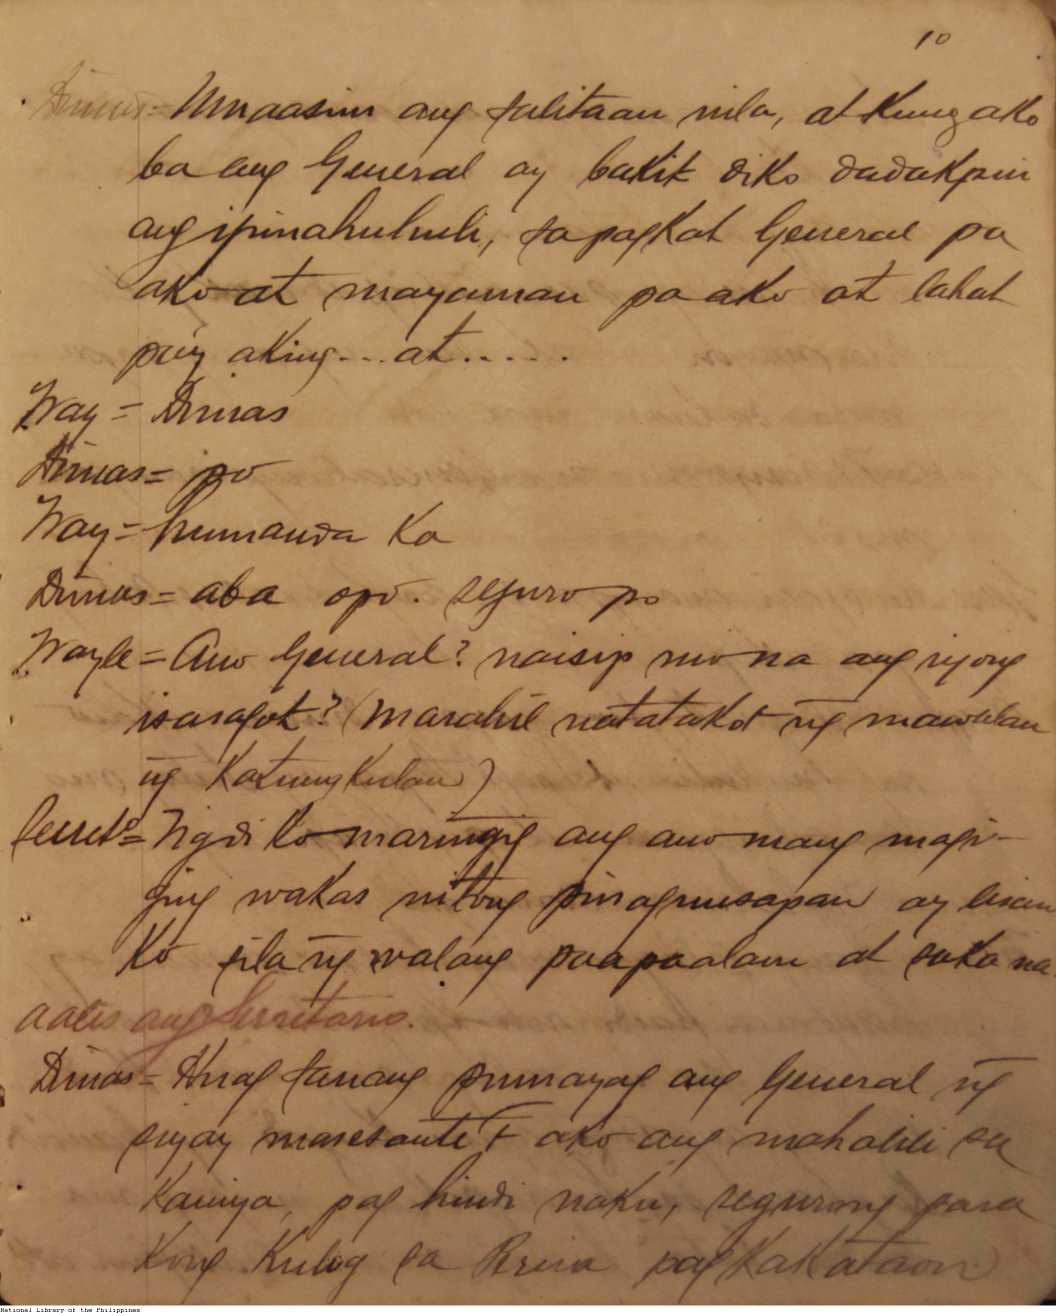 10
Dimas = Umaasim ang salitaan nila, at kung ako
ba ang General ay bakit diko dadakpin
ang ipinahuhuli, sapagkat General pa
ako at mayaman pa ako at lahat
pa'y aking... at......
Way = Dimas
Dimas = po
Way = humanda ka
Dimas = aba opo. seguro po
Wayle = Ano General? naisip mo na ang iyong
isasagot? (Marahil natatakot ñg mawalan
ñg Katungkulan)
Secreto = Ng di ko maringig ang ano mang magi-
ging wakas nitong pinagmusapan ay lisan
ko sila ñg walang paapaalam at saka na
aalis ang Secretario.
Dimas = Huag sanang pumayag ang General ñg
siyay masesante t ako ang mahalili sa
kaniya, pag hindi naku, segurong para
kong Kulog sa pagkakataon
National Library of the Philippines